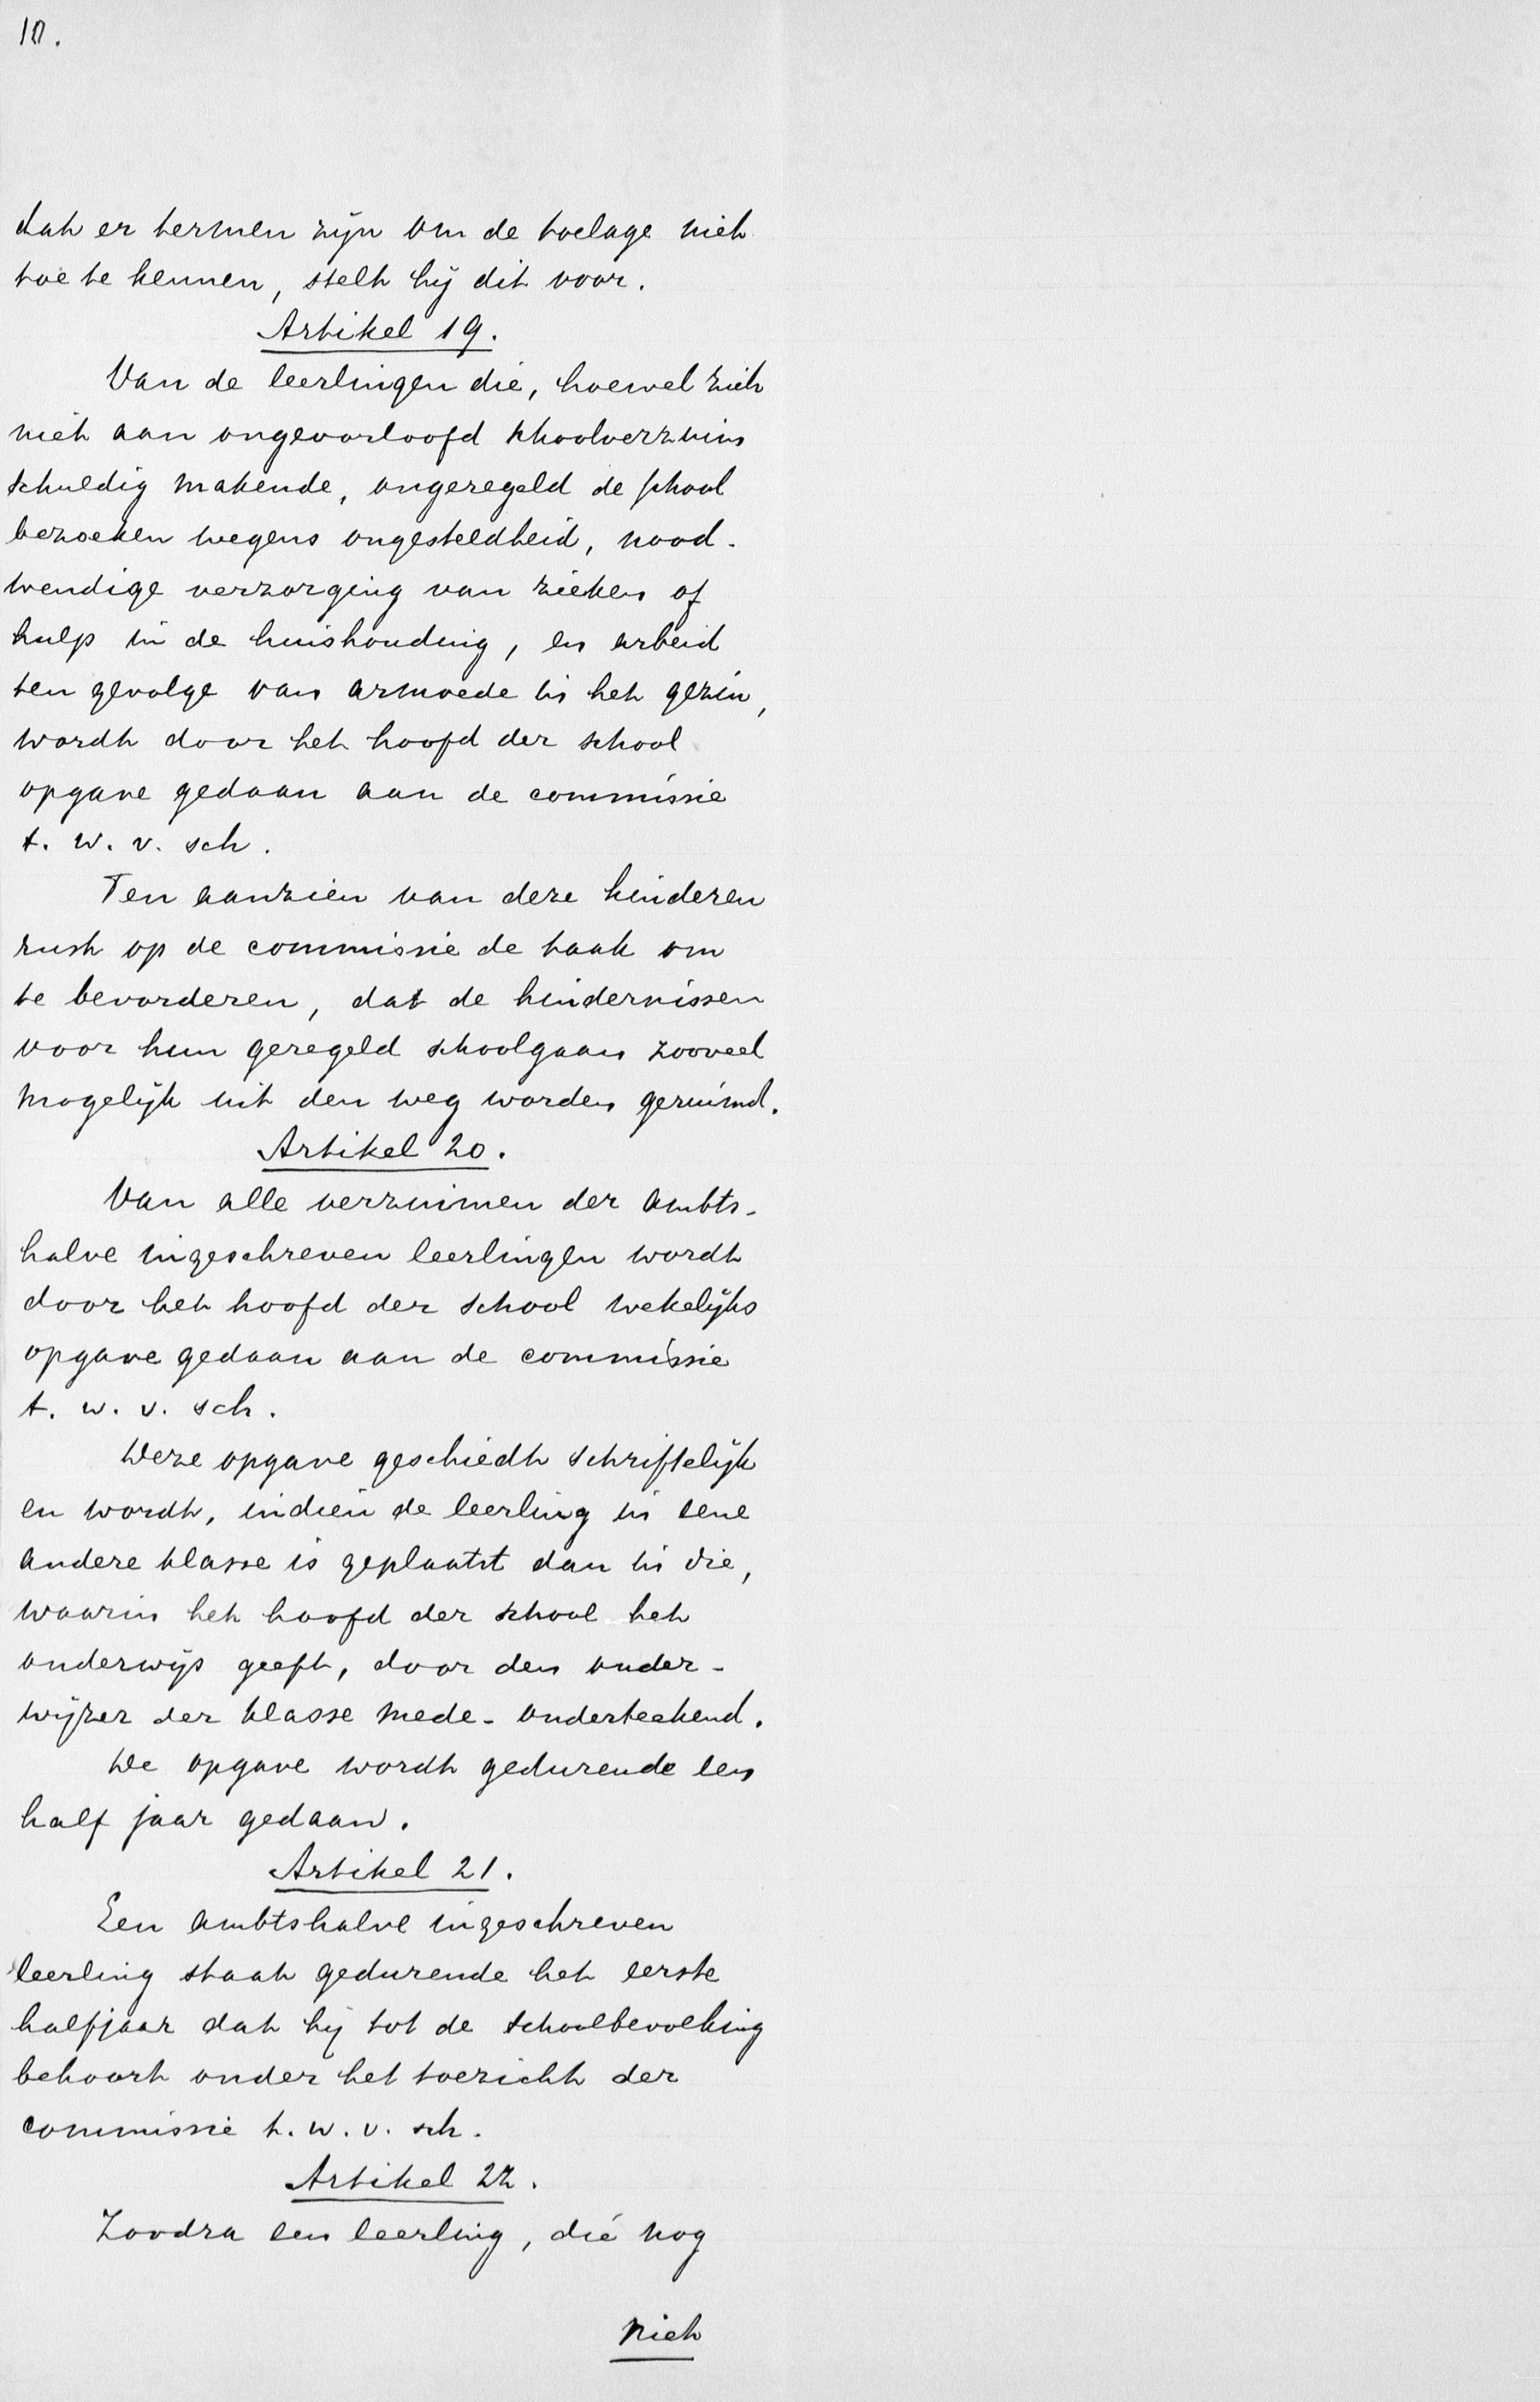 10.
dat er termen zijn om de toelage niet
toe te kennen, stelt hij dit voor.
Artikel 19.
Van de leerlingen die, hoewel zich
niet aan ongeoorloofd schoolverzuim
schuldig makende, ongeregeld de school
bezoeken wegens ongesteldheid, nood-
wendige verzorging van zieken of
hulp in de huishouding, en arbeid
ten gevolge van armoede in het gezin,
wordt door het hoofd der school
opgave gedaan aan de commissie
t. w. v. sch.
Ten aanzien van deze kinderen
rust op de commissie de taak om
te bevorderen, dat de hindernissen
voor hun geregeld schoolgaan zooveel
mogelijk uit den weg worden geruimd.
Artikel 20.
Van alle verzuimen der ambts-
halve ingeschreven leerlingen wordt
door het hoofd der school wekelijks
opgave gedaan aan de commissie
t. w. v. sch.
Deze opgave geschiedt schriftelijk
en wordt, indien de leerling in eene
andere klasse is geplaatst dan in die,
waarin het hoofd der school het
onderwijs geeft, door den onder-
wijzer der klasse mede-onderteekend.
De opgave wordt gedurende een
half jaar gedaan.
Artikel 21.
Een ambtshalve ingeschreven
leerling staat gedurende het eerste
halfjaar dat hij tot de schoolbevolking
behoort onder het toezicht der
commissie t. w. v. sch.
Artikel 22.
Zoodra een leerling, die nog
niet